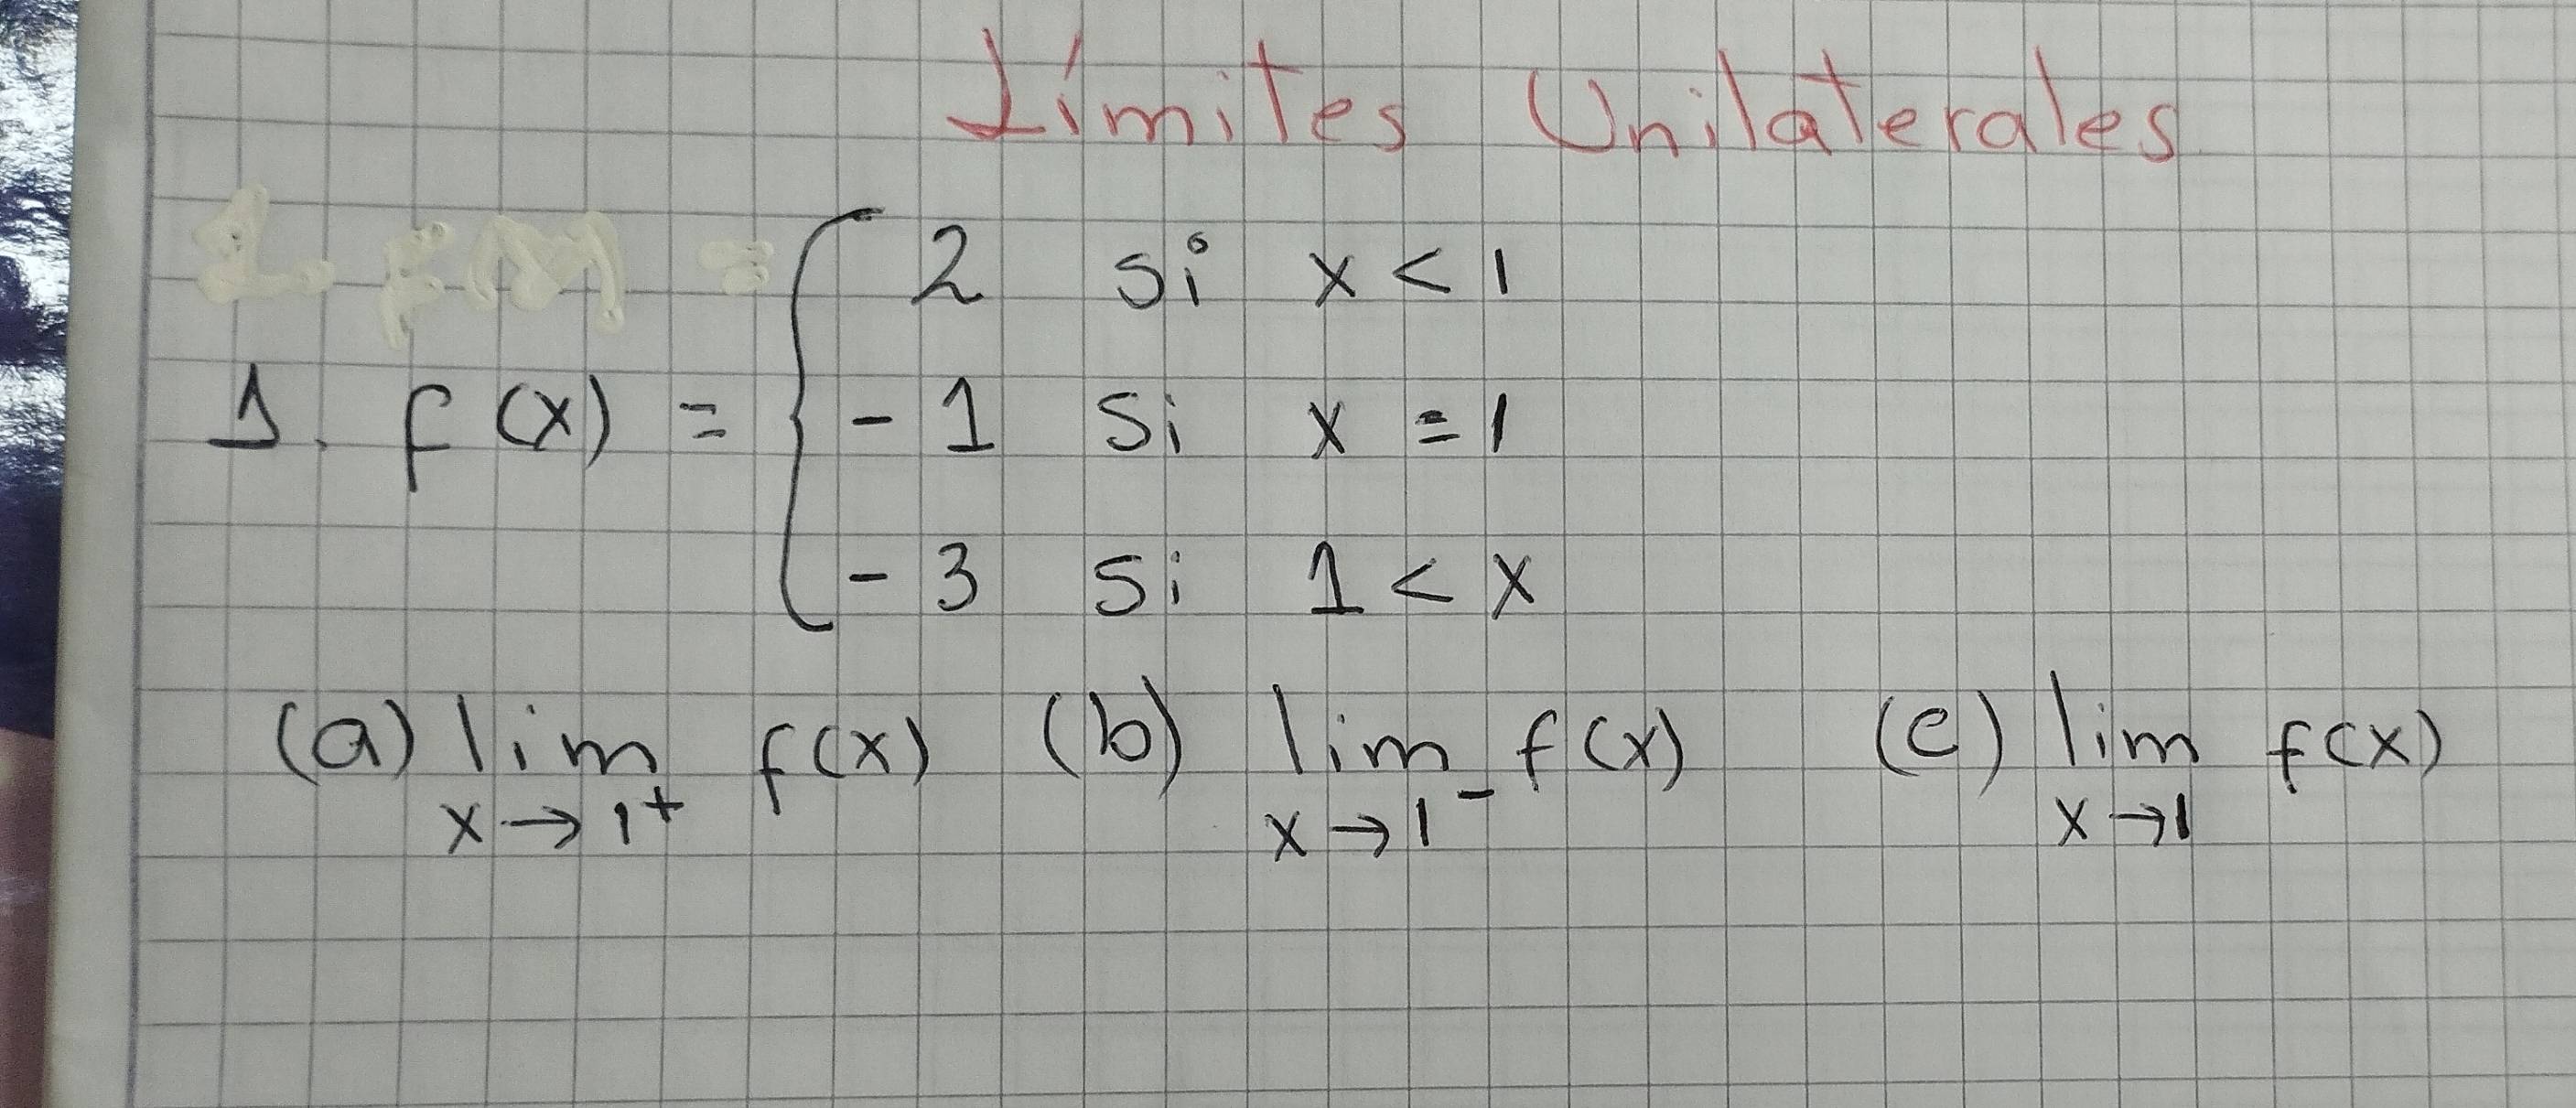 Límites Unilaterales
1. f(x) =
2 si x < 1
- 1 si x = 1
- 3 si 1 < x
(a) lim f(x) (b) lim f(x) (c) lim f(x)
x → 1⁺ x → 1⁻ x → 1